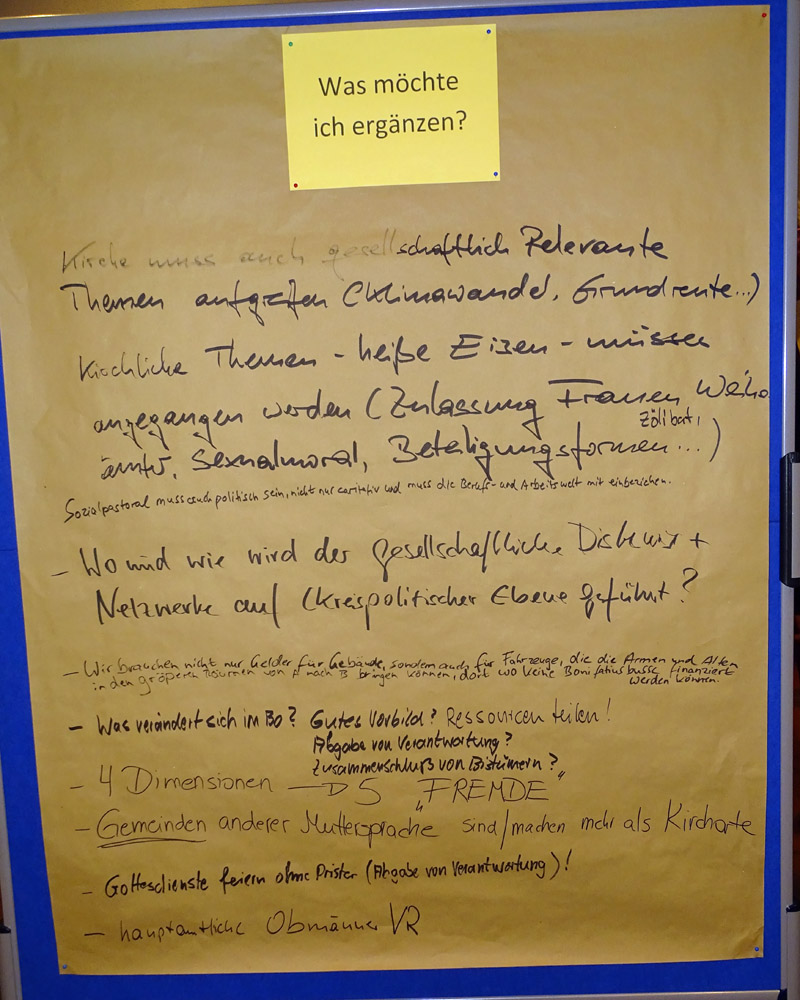 Was möchte
ich ergänzen?
Kirche muss auch gesellschaftlich Relevante
Themen aufgreifen (Klimawandel, Grundrente...)
Kirchliche Themen - heiße Eisen - müssen
angegangen werden (Zulassung Frauen Weihe
Zölibat,
ämter, Sexualmoral, Beteiligungsformen...)
Sozialpastoral muss auch politisch sein, nicht nur caritativ und muss die Berufs- und Arbeitswelt mit einbeziehen.
- Wo und wie wird der gesellschaftliche Diskurs +
Netzwerke auf (kreispolitischer Ebene geführt?
- Wir brauchen nicht nur Gelder für Gebäude, sondern auch für Fahrzeuge, die die Armen und Alten
in den größeren Räumen von A nach B bringen können, dort wo keine Bonifatiusbusse finanziert
werden können.
- Was verändert sich im BO? Gutes Vorbild? Ressourcen teilen!
Abgabe von Verantwortung?
Zusammenschluß von Bistümern?
- 4 Dimensionen → 5 "FREMDE"
- Gemeinden anderer Muttersprache sind/machen mehr als Kirchorte
- Gottesdienste feiern ohne Prister (Abgabe von Verantwortung)!
- hauptamtliche Obmänner VR